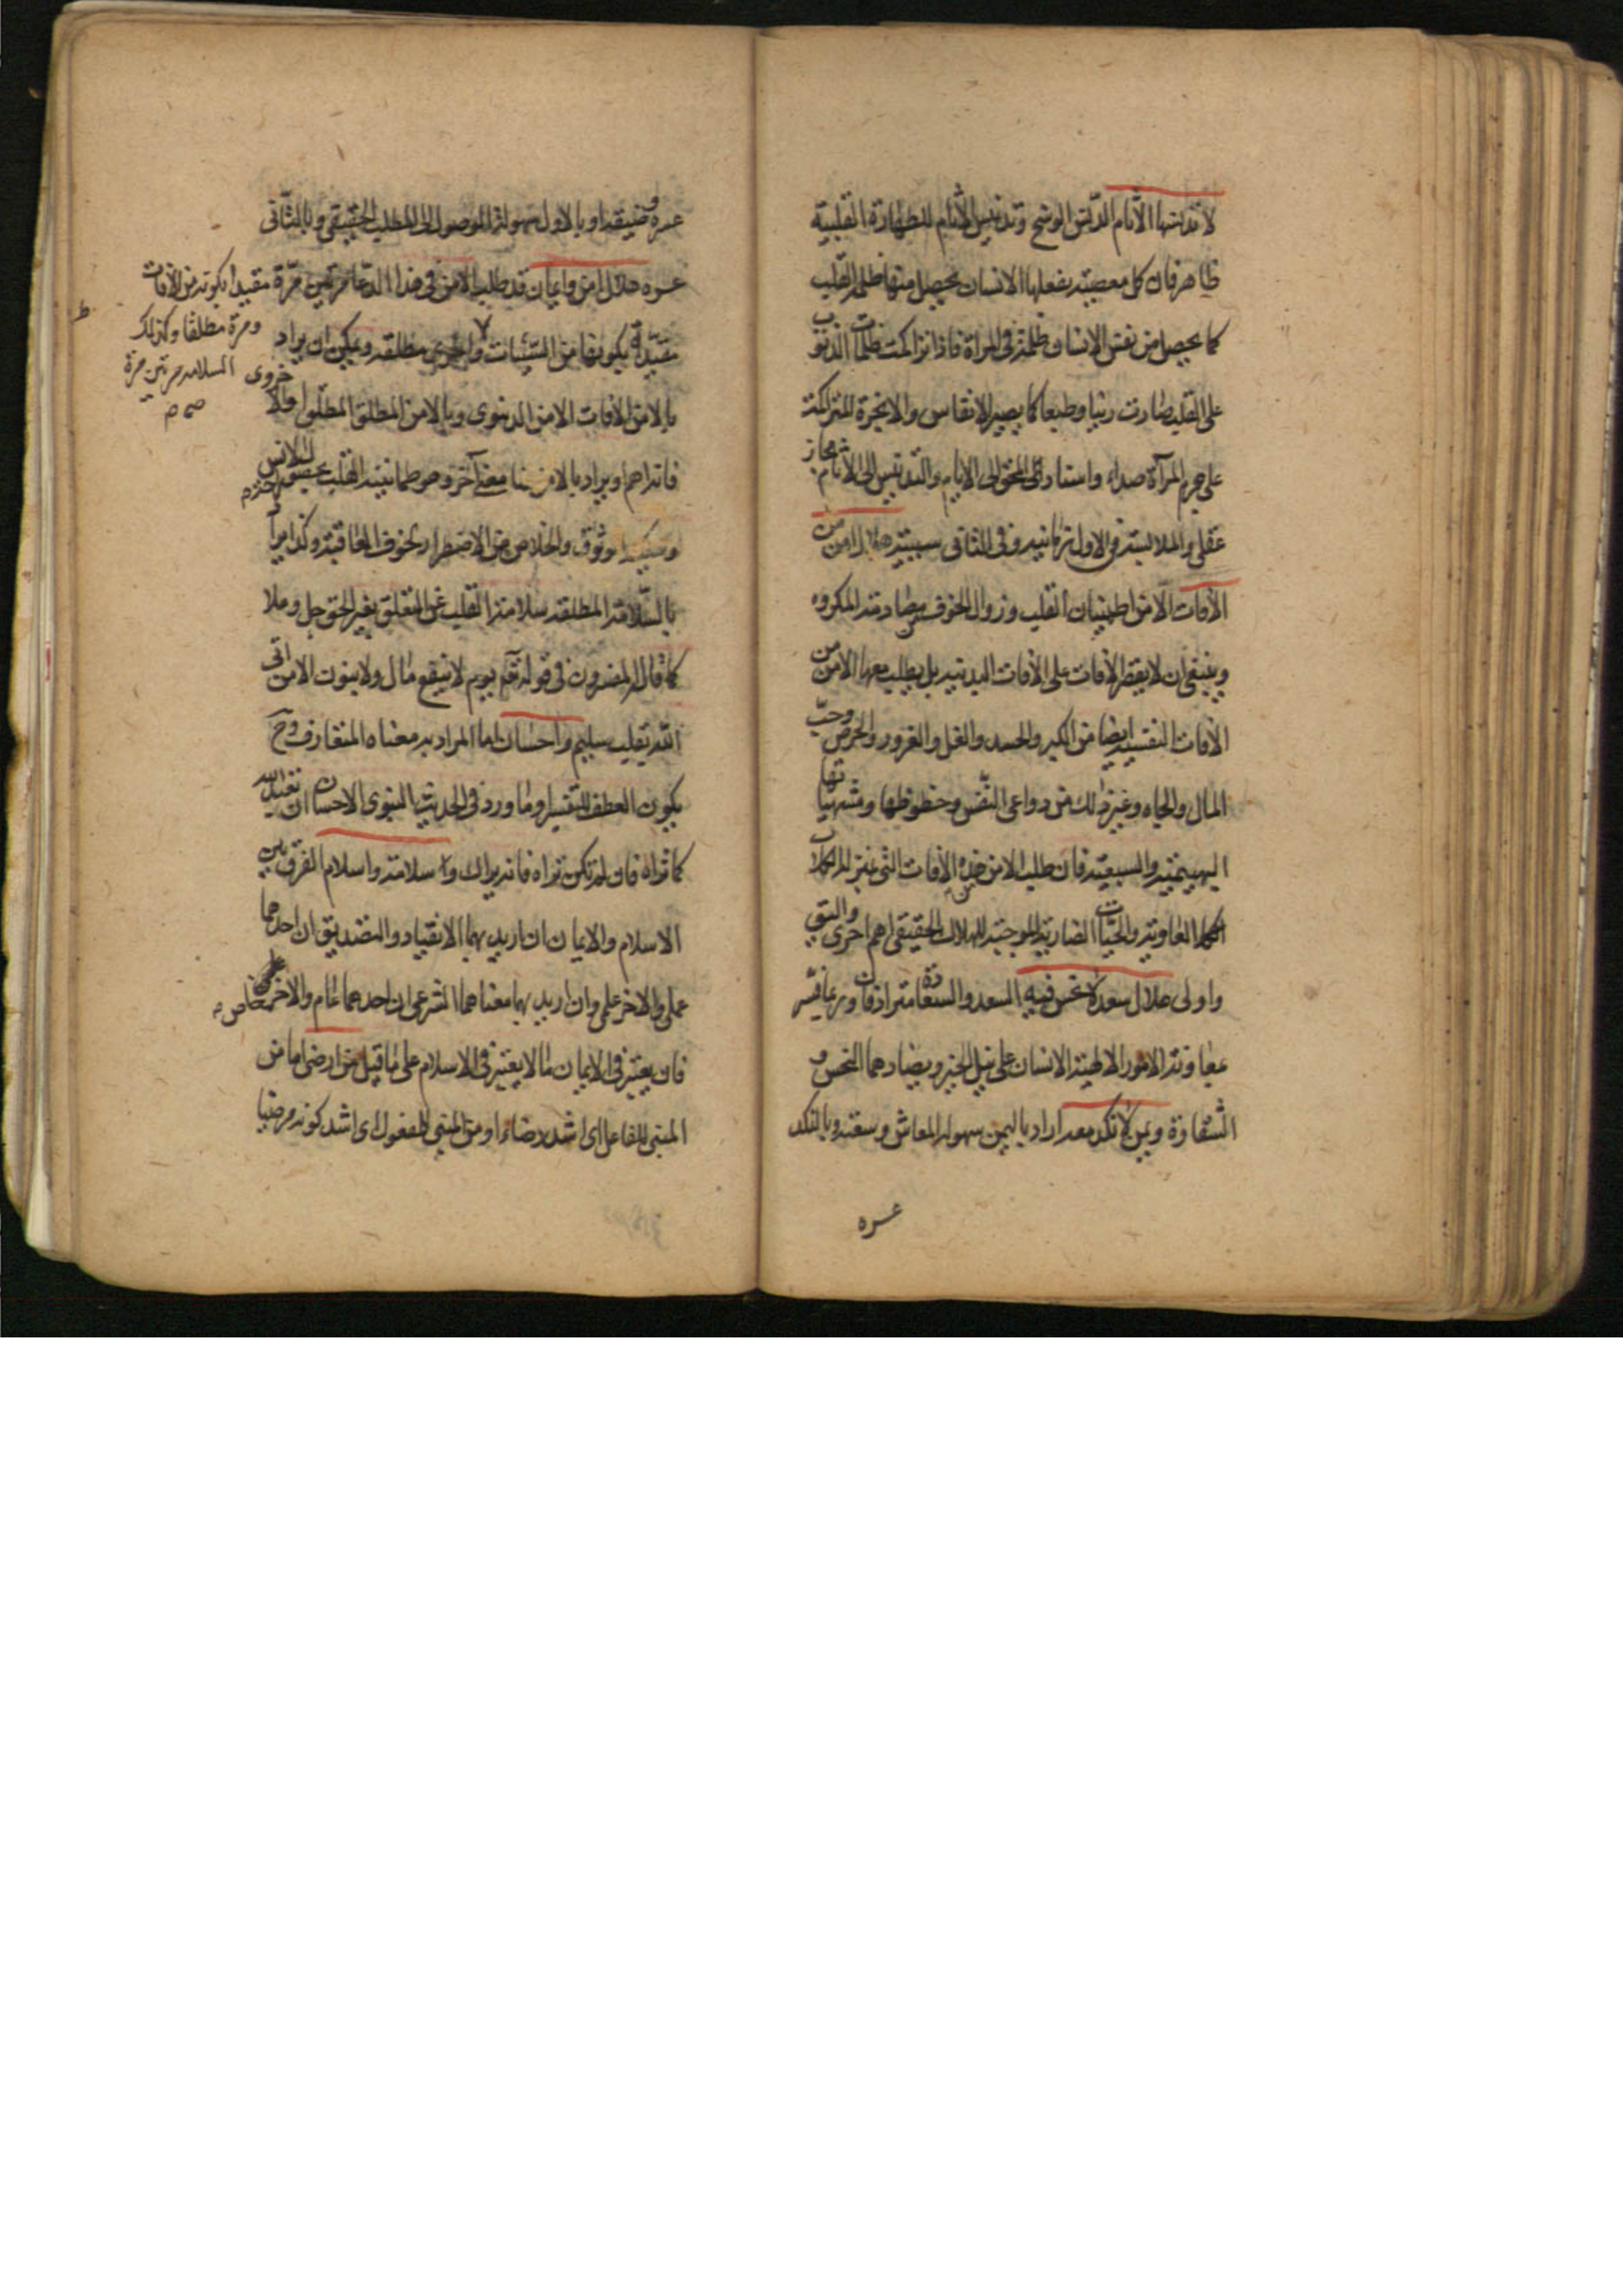 لا تدنسها الآثام الدنس الوسخ وتدنيس الآثام للطهارة القلبية
ظاهر فان كل معصية يفعلها الانسان يحصل منها ظلمة في القلب
كما يحصل من نفس الانسان ظلمة في المرآة فاذا تراكمت ظلمات الذنوب
على القلب صارت رينا وطبعا كما يصير الانفاس والابخرة المتراكمة
على جرم المرآة صداء واسناد المحق الى الايام والتدنيس الى الآثام مجاز
عقلي والملابسة في الاول زمانية وفي الثاني سببية هلال امن من
الآفات الامن اطمينان القلب وزوال الخوف من مصادمة المكروه
وينبغي ان لا يقصر الآفات على الآفات البدنية بل يطلب معها الامن من
الآفات النفسية ايضا من الكبر والحسد والغل والغرور والحرص وحب
المال والجاه وغير ذلك من دواعي النفس وحظوظها ومشتهياتها
البهيمية والسبعية فان طلب الامن من هذه الآفات التي بمنزلة الكلاب
العاوية والحيات الضارية الموجبة للهلاك الحقيقي اهم واحرى واليق
واولى هلال سعد لا نحس فيه السعد والسعادة مترادفان وربما فسر
بمعاونة الامور الالهية الانسان على نيل الخير ويضادهما النحس و
الشقاوة ويمن لا نكد معه اراد باليمن سهولة المعاش وسعته وبالنكد
عسره
عسره وضيقه او بالاول سهولة الوصول الى المطلب الحقيقي وبالثاني
عسره هلال امن وايمان قد طلب الامن في هذا الدعا مرتين مرة مقيدا بكونه من الآفات
ومرة مطلقا وكذلك
السلامه مرتين مرة
صح م
مقيدة بكونها من السيئات واخرى مطلقه ويمكن ان يراد
بالامن من الآفات الامن الدنيوي وبالامن المطلق المطلوب اولا الاخروى
فانه اهم ويراد بالامن هنا معنى آخر وهو طمانينة القلب بحصول الانس
وسكينة الوثوق والخلاص من الاضطرار بخوف العاقبة وكذا يراد
بالسلامة المطلقه سلامة القلب عن التعلق بغير الحق جل وعلا
كما قال المفسرون في قوله تعم يوم لا ينفع مال ولا بنون الا من اتى
الله بقلب سليم واحسان اما المراد به معناه المتعارف وح
يكون العطف للتفسير او ما ورد في الحديث النبوي الاحسان ان تعبد الله
كانك تراه فان لم تكن تراه فانه يراك وسلامة واسلام الفرق بين
الاسلام والايمان ان اريد بهما الانقياد والتصديق ان احدهما
عملي والاخر علمي وان اريد بهما معناهما الشرعي ان احدهما عام والاخر خاص
فانه يعتبر في الايمان ما لا يعتبر في الاسلام على ما قيل من ارضى اما من
المبني للفاعل اي اشد رضاء او من المبني للمفعول اي اشد كونه مرضيا